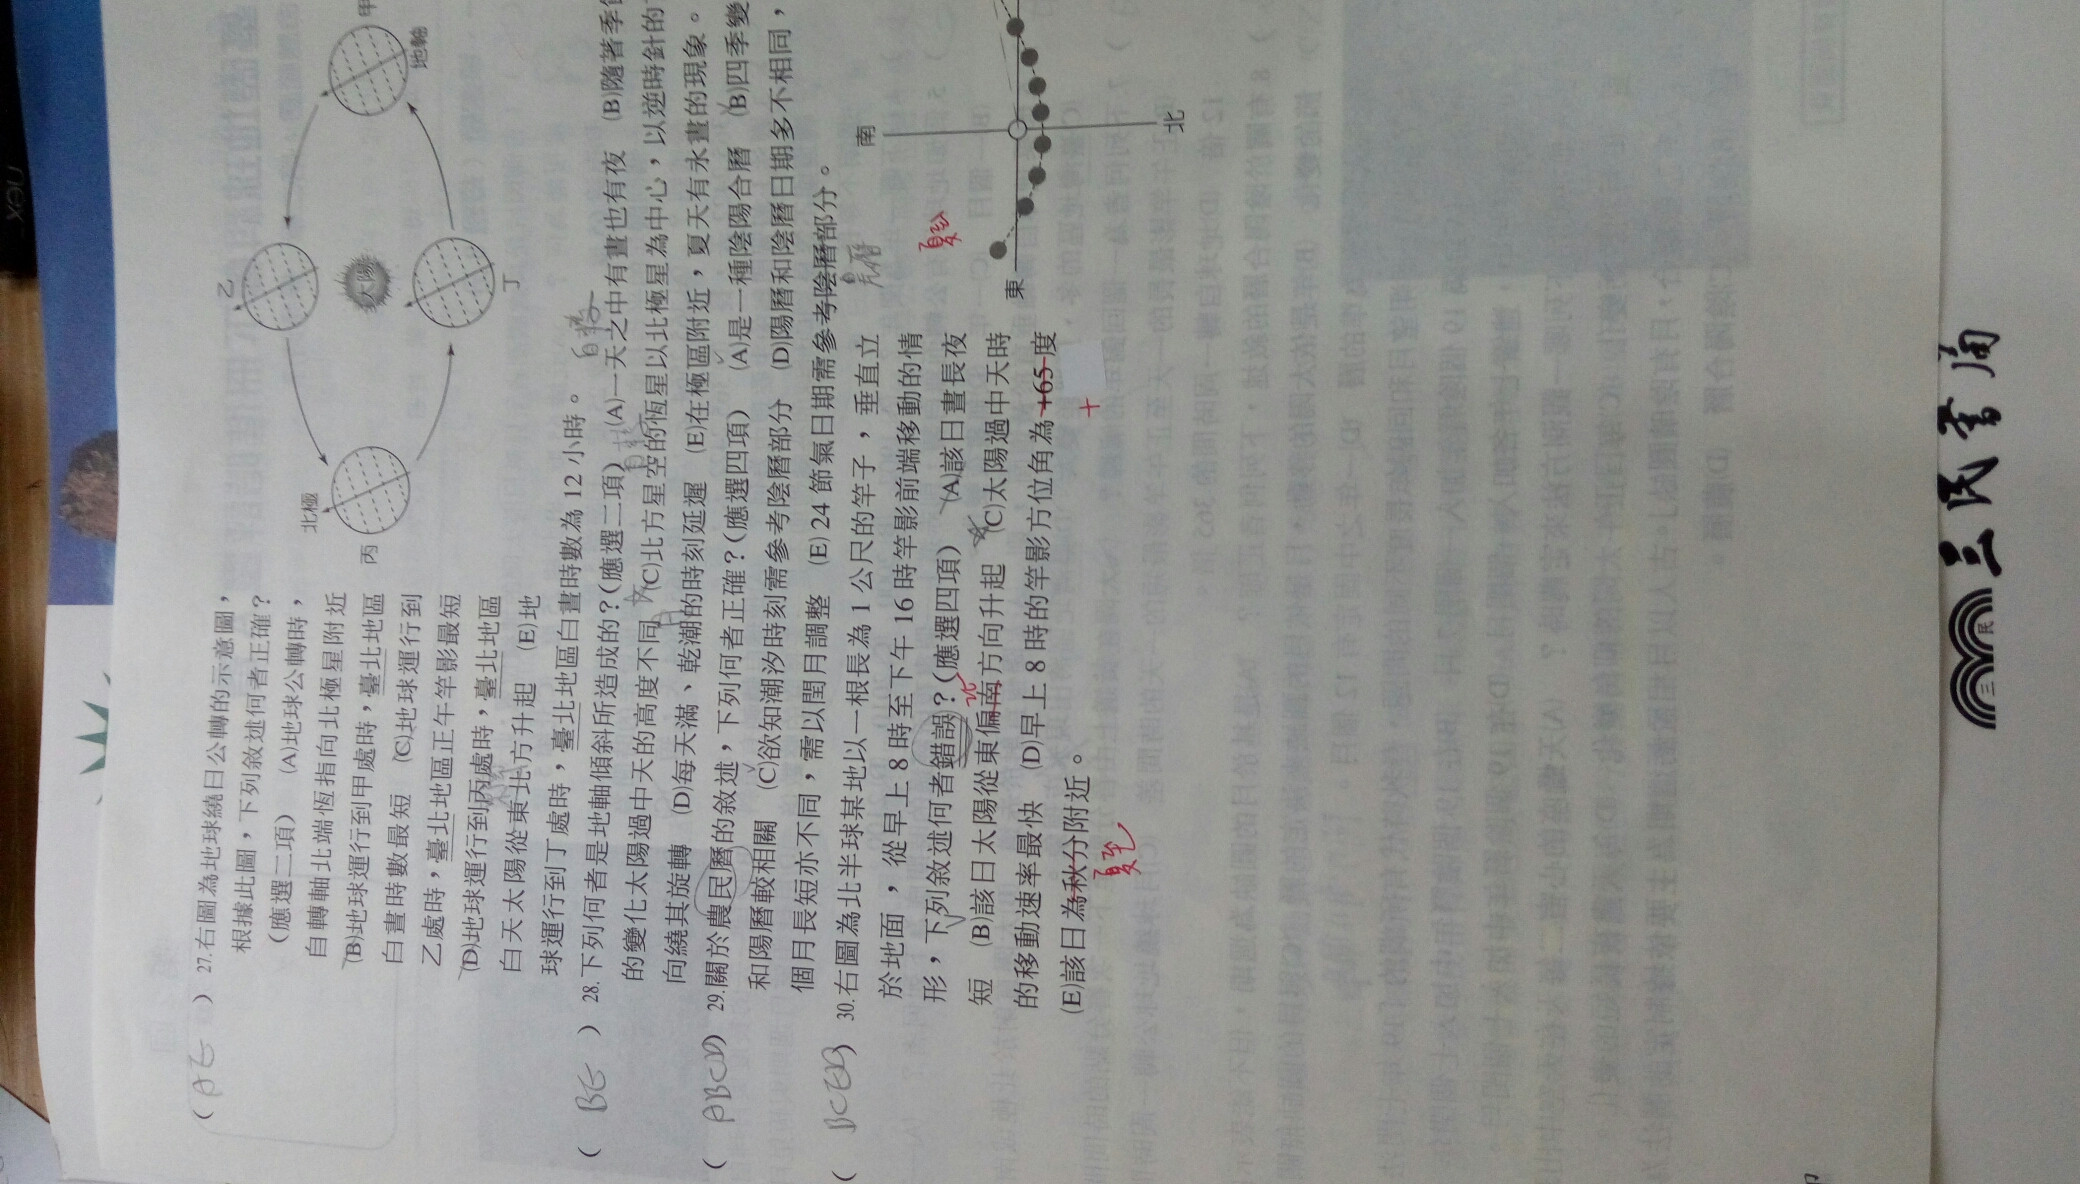 ( AE ) 27.右圖為地球繞日公轉的示意圖，
根據此圖，下列敘述何者正確？
(應選二項) (A)地球公轉時，
自轉軸北端恆指向北極星附近
(B)地球運行到甲處時，臺北地區
白晝時數最短 (C)地球運行到
乙處時，臺北地區正午竿影最短
(D)地球運行到丙處時，臺北地區
白天太陽從東北方升起 (E)地
球運行到丁處時，臺北地區白晝時數為12小時。
北極
丙
乙
太陽
丁
甲
地軸
( BE ) 28.下列何者是地軸傾斜所造成的？(應選二項) (A)一天之中有晝也有夜 (B)隨著季
自轉
的變化太陽過中天的高度不同 (C)北方星空的恆星以北極星為中心，以逆時針的
向繞其旋轉 (D)每天滿、乾潮的時刻延遲 (E)在極區附近，夏天有永晝的現象。
( ABCD ) 29.關於農民曆的敘述，下列何者正確？(應選四項) (A)是一種陰陽合曆 (B)四季變
和陽曆較相關 (C)欲知潮汐時刻需參考陰曆部分 (D)陽曆和陰曆日期多不相同，
個月長短亦不同，需以閏月調整 (E)24節氣日期需參考陰曆部分。
( BCED ) 30.右圖為北半球某地以一根長為1公尺的竿子，垂直立
於地面，從早上8時至下午16時竿影前端移動的情
形，下列敘述何者錯誤？(應選四項) (A)該日晝長夜
短 (B)該日太陽從東偏南方向升起 (C)太陽過中天時
北
的移動速率最快 (D)早上8時的竿影方位角為+65度
+
(E)該日為秋分附近。
夏至
夏至
南
東
北
三民書局
三民
nex